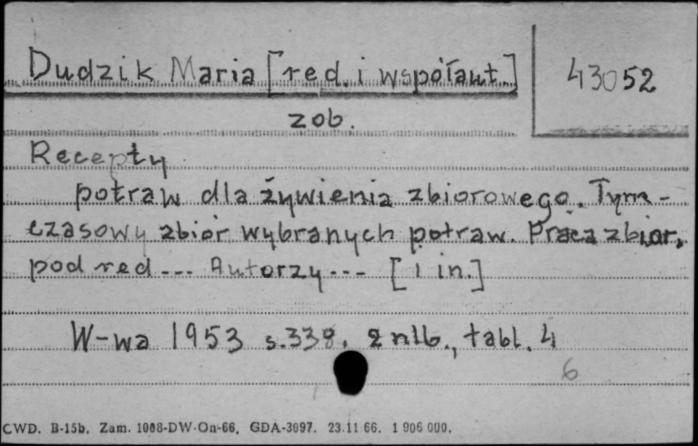 Dudzik Maria [red. i współaut.]
43052
zob.
Recepty
potraw dla żywienia zbiorowego. Tym-
czasowy zbiór wybranych potraw. Praca zbior.
pod red... Autorzy... [i in.]
W-wa 1953 s. 338, 2 nlb., tabl. 4
6
CWD. B-15b. Zam. 1008-DW-On-66. GDA-3097. 23.11 66. 1 906 000.